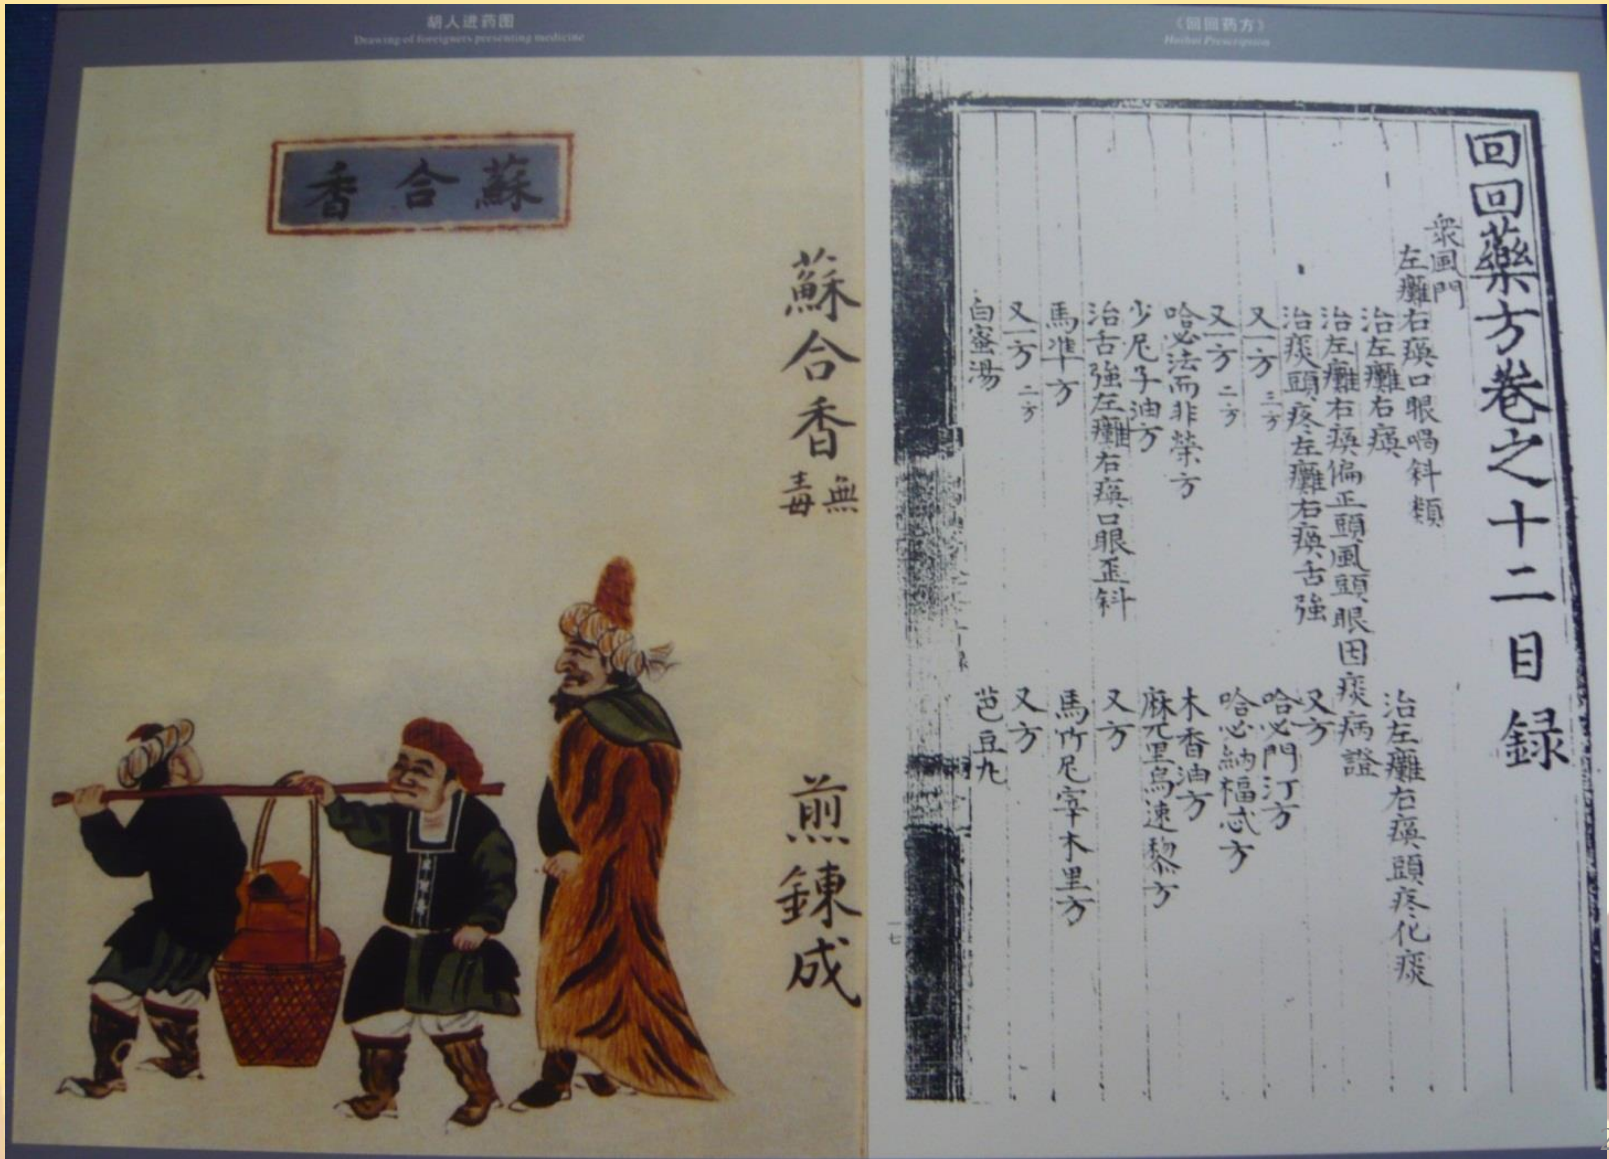 胡人进药图
Drawing of foreigners presenting medicine
《回回药方》
Huihui Prescription
蘇合香
蘇合香 無毒 煎鍊成
回回藥方卷之十二目録
衆風門
左癱右瘓口眼喎斜類
治左癱右瘓 治左癱右瘓頭疼化痰
治左癱右瘓偏正頭風頭眼因痰病證
治痰頭疼左癱右瘓舌強
又一方 三方 又方
又一方 二方 哈必門汀方
哈必法而非榮方 哈必納福忒方
少尼子油方 木香油方
治舌強左癱右瘓口眼歪斜 麻兀里烏速黎方
馬準方 又方
又一方 二方 馬竹尼宰木里方
白蜜湯 又方
芭豆九